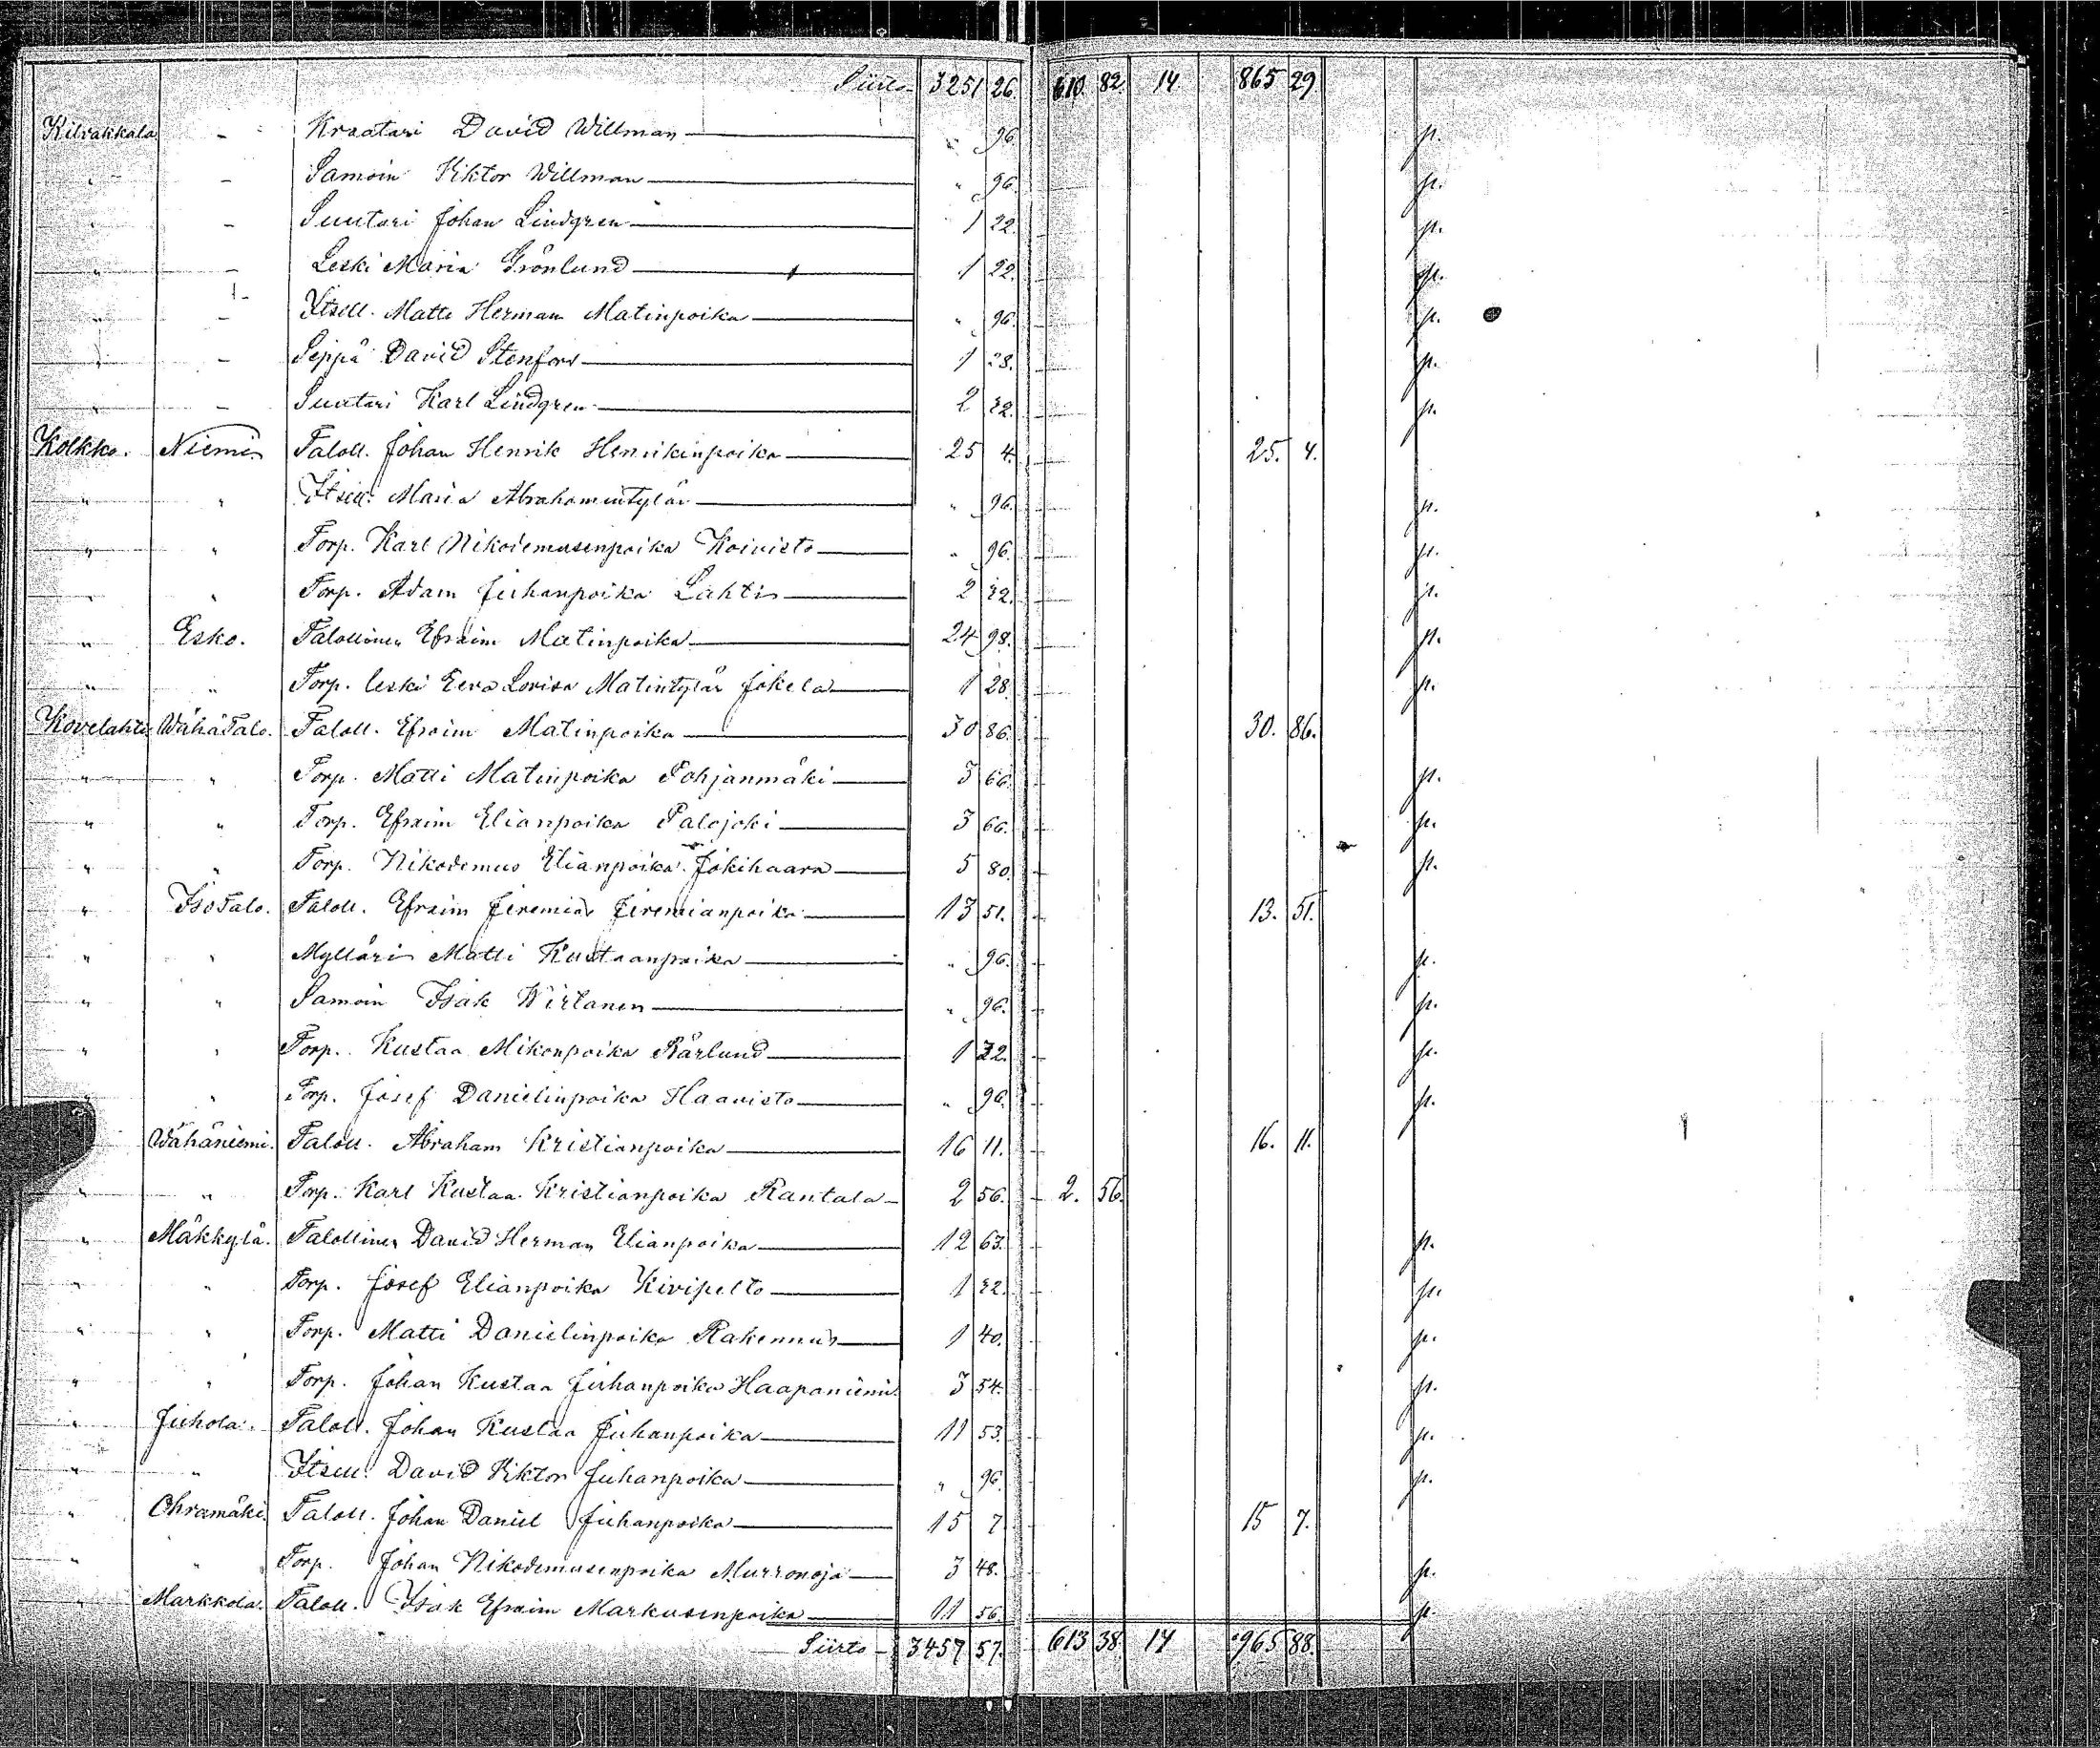 Siirto 3251 26. 610. 82. 14. 865 29.
Kilvakkala - Kraatari David Willman " 96. p.
" - Samoin Viktor Willman " 96. p.
" - Suutari Johan Lindgren 1 22. p.
" - Leski Maria Grönlund 1 22. p.
" - Itsell. Matti Herman Matinpoika " 96. p.
" - Seppä David Stenfors 1 28. p.
" - Suutari Karl Lindgren 2 32. p.
Kolkko. Niemi Taloll. Johan Henrik Henrikinpoika 25 4. 25. 4.
" " Itsell. Maria Abrahamintytär " 96. p.
" " Torp. Karl Nikodemusenpoika Koivisto " 96. p.
" " Torp. Adam Juhanpoika Lahti 2 32. p.
" Esko. Talollinen Efraim Matinpoika 24 98. p.
" " Torp. leski Eeva Lovisa Matintytär Jokela 1 28. p.
Kovelahti Wähätalo. Taloll. Efraim Matinpoika 30 86. 30. 86.
" " Torp. Matti Matinpoika Pohjanmäki 3 66. p.
" " Torp. Efraim Elianpoika Palojoki 3 66. p.
" " Torp. Nikodemus Elianpoika Jokihaara 5 80. p.
" Isotalo. Taloll. Efraim Jeremias Jeremianpoika 13 51. 13. 51.
" " Mylläri Matti Kustaanpoika " 96. p.
" " Samoin Isak Wirtanen " 96. p.
" " Torp. Kustaa Mikonpoika Kärlund 1 22. p.
" " Torp. Josef Danielinpoika Haavisto " 96. p.
Wähäniemi. Taloll. Abraham Kristianpoika 16 11. 16. 11.
" " Torp. Karl Kustaa Kristianpoika Rantala 2 56. 2. 56.
" Mäkkylä. Talollinen David Herman Elianpoika 12 63. p.
" " Torp. Josef Elianpoika Kivipelto 1 22. p.
" " Torp. Matti Danielinpoika Rakennus 1 40. p.
" " Torp. Johan Kustaa Juhanpoika Haapaniemi 3 54. p.
" Juhola. Taloll. Johan Kustaa Juhanpoika 11 53. p.
" " Itsell. David Viktor Juhanpoika " 96. p.
" Ohramäki. Taloll. Johan Daniel Juhanpoika 15 7. 15 7.
" " Torp. Johan Nikodemusenpoika Murronoja 3 48. p.
Markkola. Taloll. Isak Efraim Markusenpoika 11 56. p.
Siirto 3457 57. 613 38. 14 965 88.